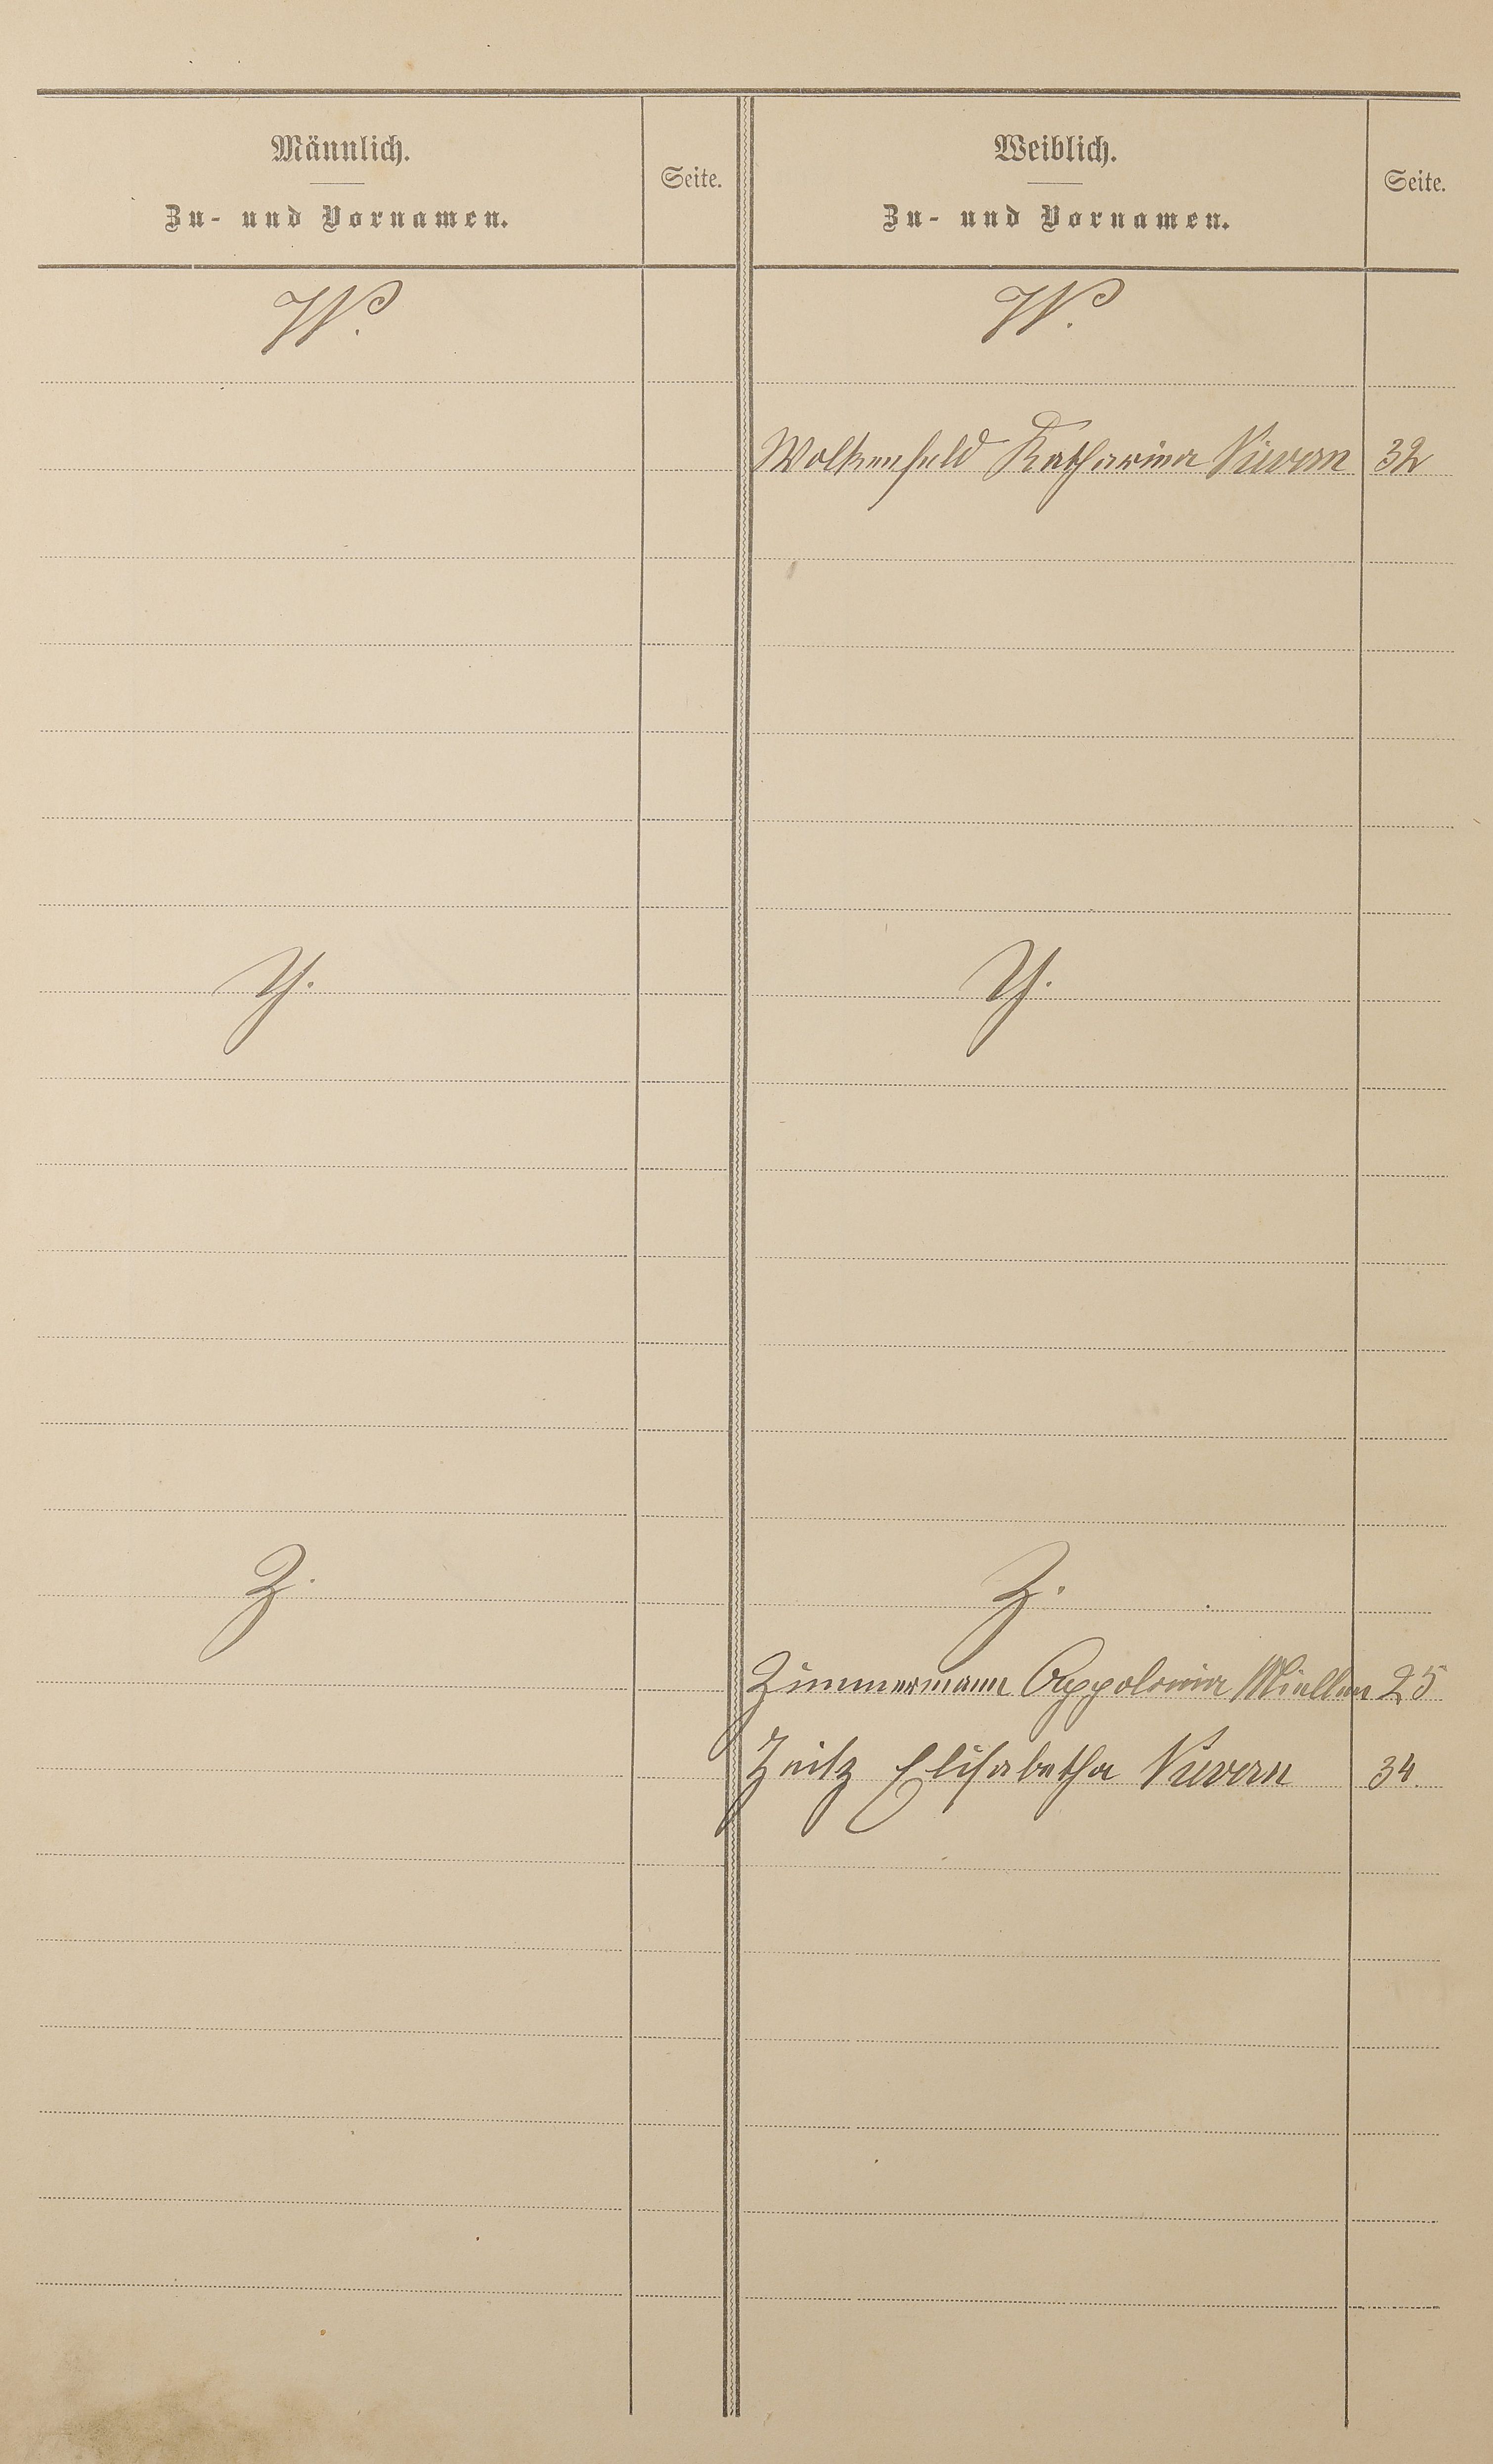 Männlich.
Zu- und Vornamen.
Seite.
Weiblich.
Zu- und Vornamen.
Seite.
W.
W.
Wolkenfeld Katharina Nievern 32
Y.
Y.
Z.
Z.
Zimmermann Appolonia Miellen 25
Zeitz Elisabetha Nievern 34.